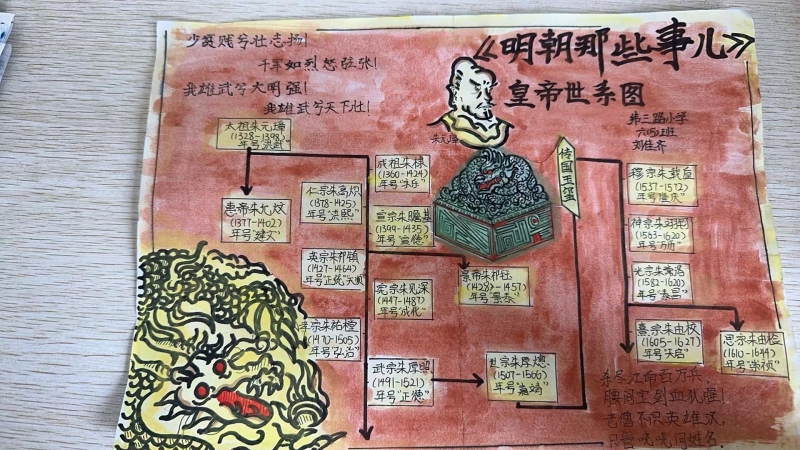 《明朝那些事儿》
皇帝世系图
少贫贱兮壮志扬!
千军如烈怒弦张!
我雄武兮大明强!
我雄武兮天下壮!
第三路小学
六(5)班
朱元璋
传国玉玺
太祖朱元璋
(1328-1398)
年号"洪武"
惠帝朱允炆
(1377-1402)
年号"建文"
成祖朱棣
(1360-1424)
年号"永乐"
仁宗朱高炽
(1378-1425)
年号"洪熙"
宣宗朱瞻基
(1399-1435)
年号"宣德"
英宗朱祁镇
(1427-1464)
年号"正统""天顺"
景帝朱祁钰
(1428-1457)
年号"景泰"
宪宗朱见深
(1447-1487)
年号"成化"
孝宗朱祐樘
(1470-1505)
年号"弘治"
武宗朱厚照
(1491-1521)
年号"正德"
世宗朱厚熜
(1507-1566)
年号"嘉靖"
穆宗朱载垕
(1537-1572)
年号"隆庆"
神宗朱翊钧
(1563-1620)
年号"万历"
光宗朱常洛
(1582-1620)
年号"泰昌"
熹宗朱由校
(1605-1627)
年号"天启"
思宗朱由检
(1610-1644)
年号"崇祯"
杀尽江南百万兵,
腰间宝剑血犹腥!
老僧不识英雄汉,
只管哓哓问姓名.